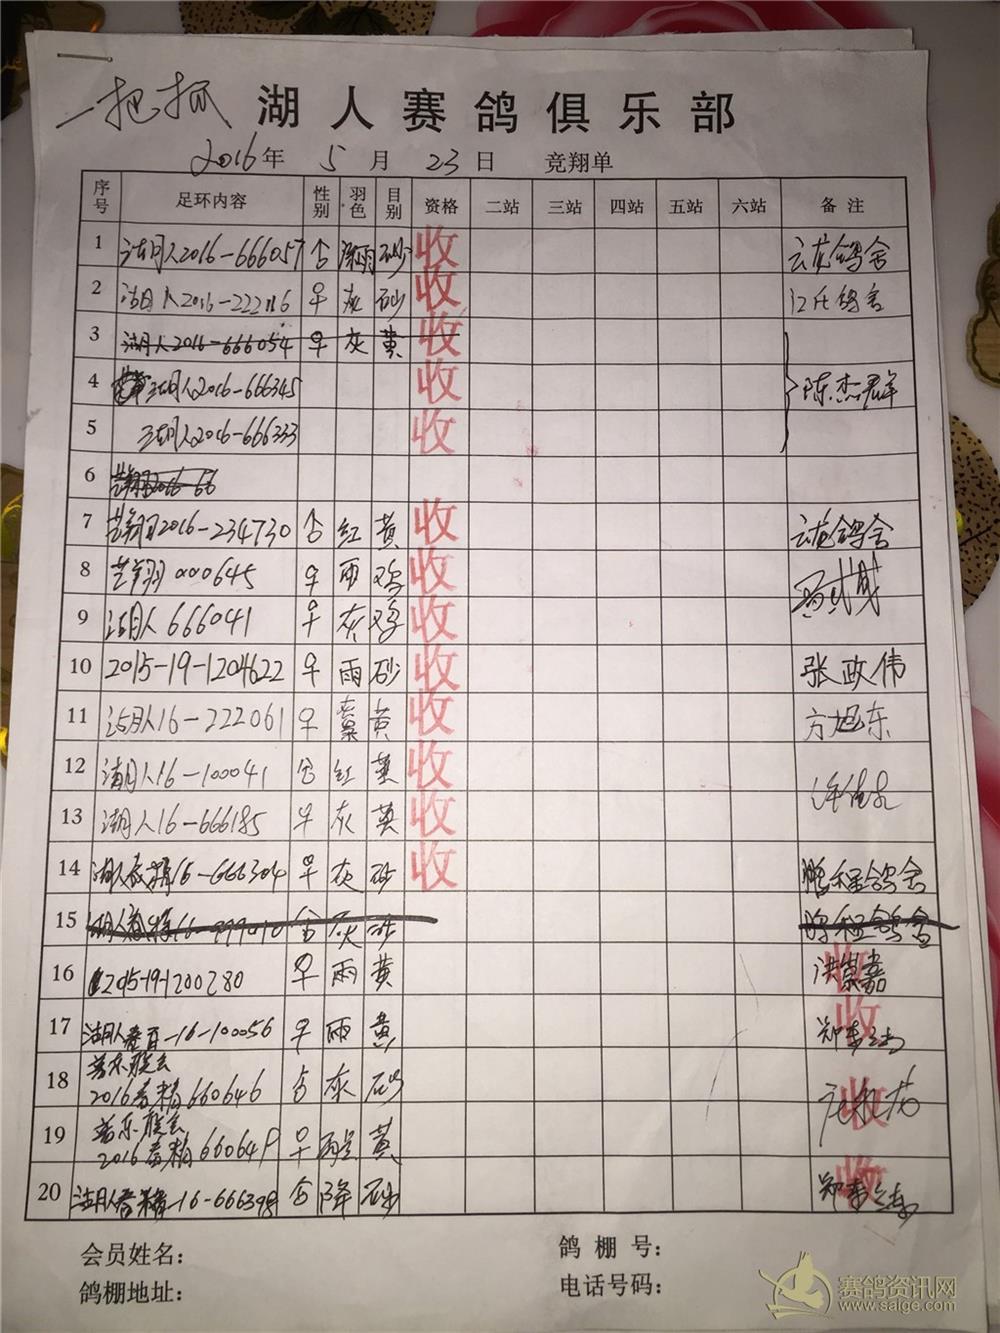 一把抓 湖人赛鸽俱乐部
2016年 5 月 23 日 竞翔单
序号 足环内容 性别 羽色 目别 资格 二站 三站 四站 五站 六站 备注
1 湖人2016-666057 雨 砂 收 云龙鸽舍
2 湖人2016-222116 ♀ 灰 砂 收 江氏鸽舍
3 湖人2016-666054 ♀ 灰 黄 收
4 湖人2016-666345 收 陈杰群
5 湖人2016-666333 收
6 2016-66
7 芸翔2016-234730 红 黄 收 云龙鸽舍
8 芸翔 000645 ♀ 雨 鸡 收
9 湖人 666041 ♀ 灰 鸡 收
10 2015-19-1204622 ♀ 雨 砂 收 张政伟
11 湖人16-222061 ♀ 黄 收 方旭东
12 湖人16-100041 红 黄 收
13 湖人16-666185 ♀ 灰 黄 收
14 湖人春棒16-666304 ♀ 灰 砂 收 鹏程鸽舍
15 湖人 16-999010 灰 砂 鹏程鸽舍
16 2015-19-1200280 ♀ 雨 黄 洪崇嘉 收
17 湖人 16-100056 ♀ 雨 黄 收
18 2016春棒660646 灰 砂 收
19 2016春棒660649 ♀ 黄
20 湖人春棒-16-666398 砂 收
会员姓名： 鸽棚号：
鸽棚地址： 电话号码：
赛鸽资讯网
www.saige.com